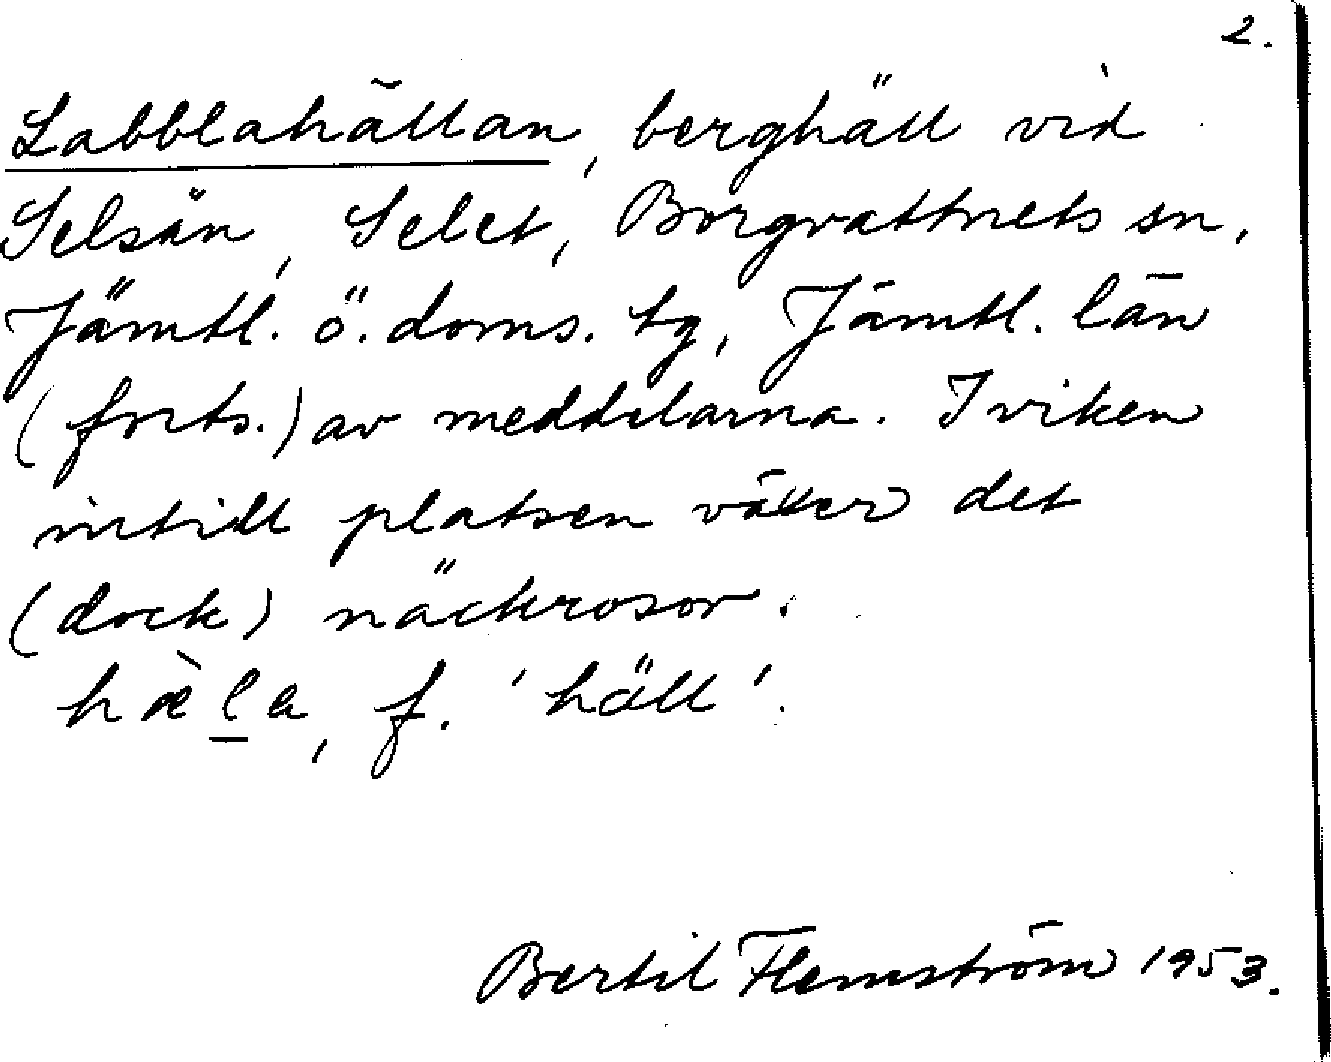 2.
Labblahällan, berghäll vid
Selsån, Selet, Borgvattnets sn,
Jämtl. ö. doms. tg, Jämtl. län
(forts.) av meddelarna. I viken
intill platsen växer det
(dock) näckrosor.
hæ̀l̲a, f. 'häll'.
Bertil Flemström 1953.